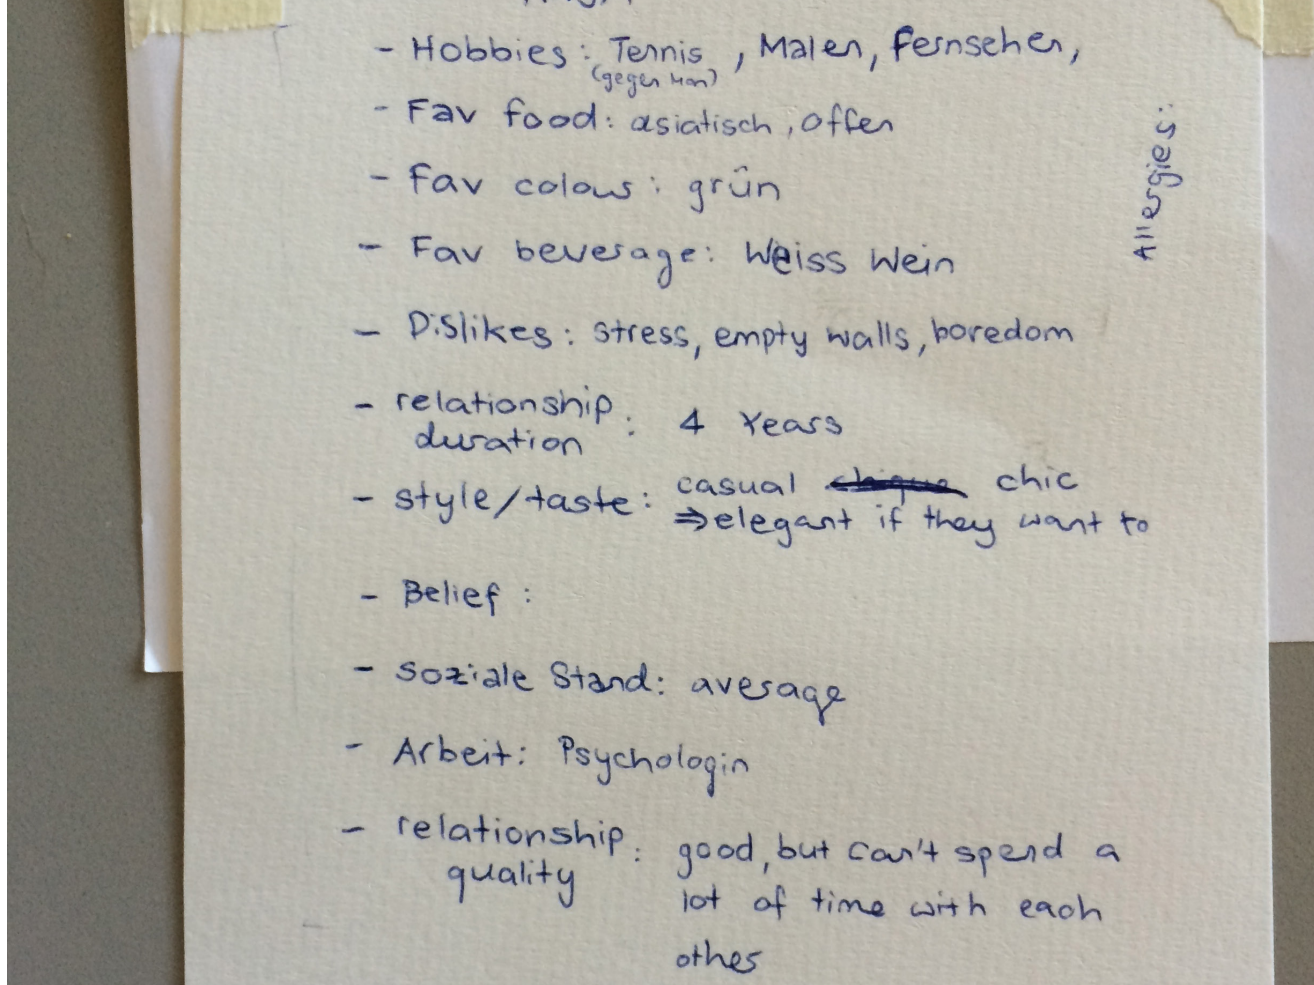 - Hobbies: Tennis, Malen, Fernsehen,
(gegen
- Fav food: asiatisch, offen
- Fav colour: grün
- Fav beverage: Weiss Wein
Allergies:
- Dislikes: stress, empty walls, boredom
- relationship duration: 4 Years
- style/taste: casual chic
⇒ elegant if they want to
- Belief:
- Soziale Stand: average
- Arbeit: Psychologin
- relationship quality: good, but can't spend a
lot of time with each
other